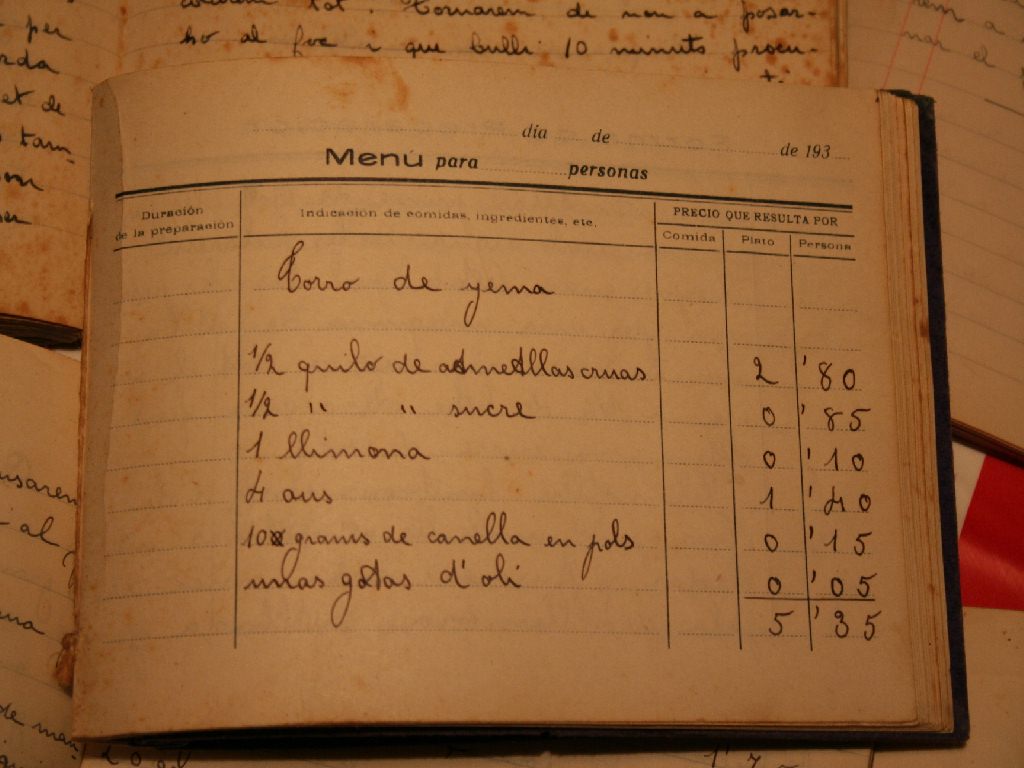 per
colorem tot. Tornarem de nou a posar-
ho al foc i que bulli 10 minuts procu-
et de
tam-
día de de 193
Menú para personas
Duración de la preparación
Indicación de comidas, ingredientes, etc.
PRECIO QUE RESULTA POR
Comida Plato Persona
Torro de yema
1/2 quilo de ametllas cruas 2'80
1/2 " " sucre 0'85
1 llimona 0'10
4 ous 1'40
10 grams de canella en pols 0'15
unas gotas d'oli 0'05
5'35
al
de man-